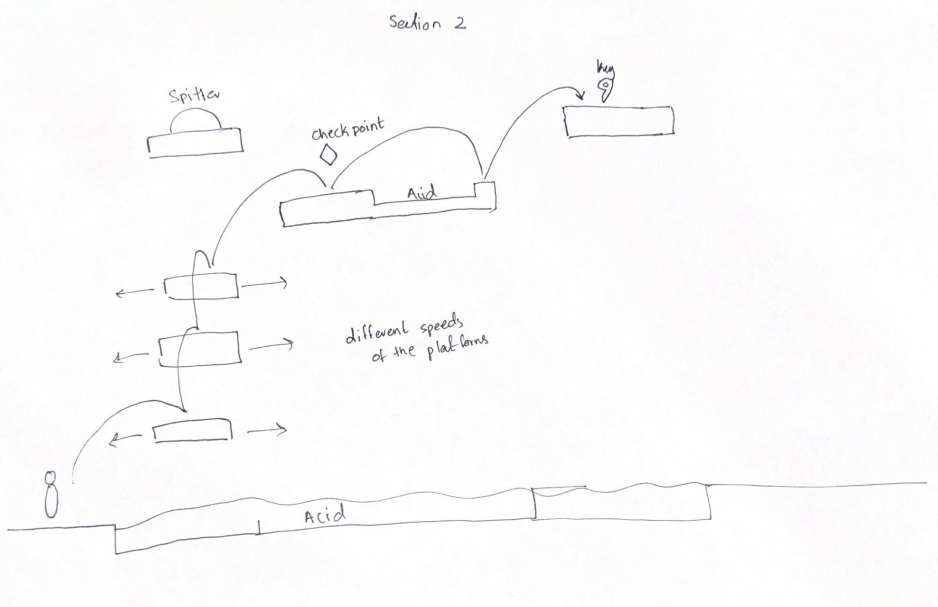 Section 2
Key
Spitter
checkpoint
Acid
different speeds
of the platforms
Acid